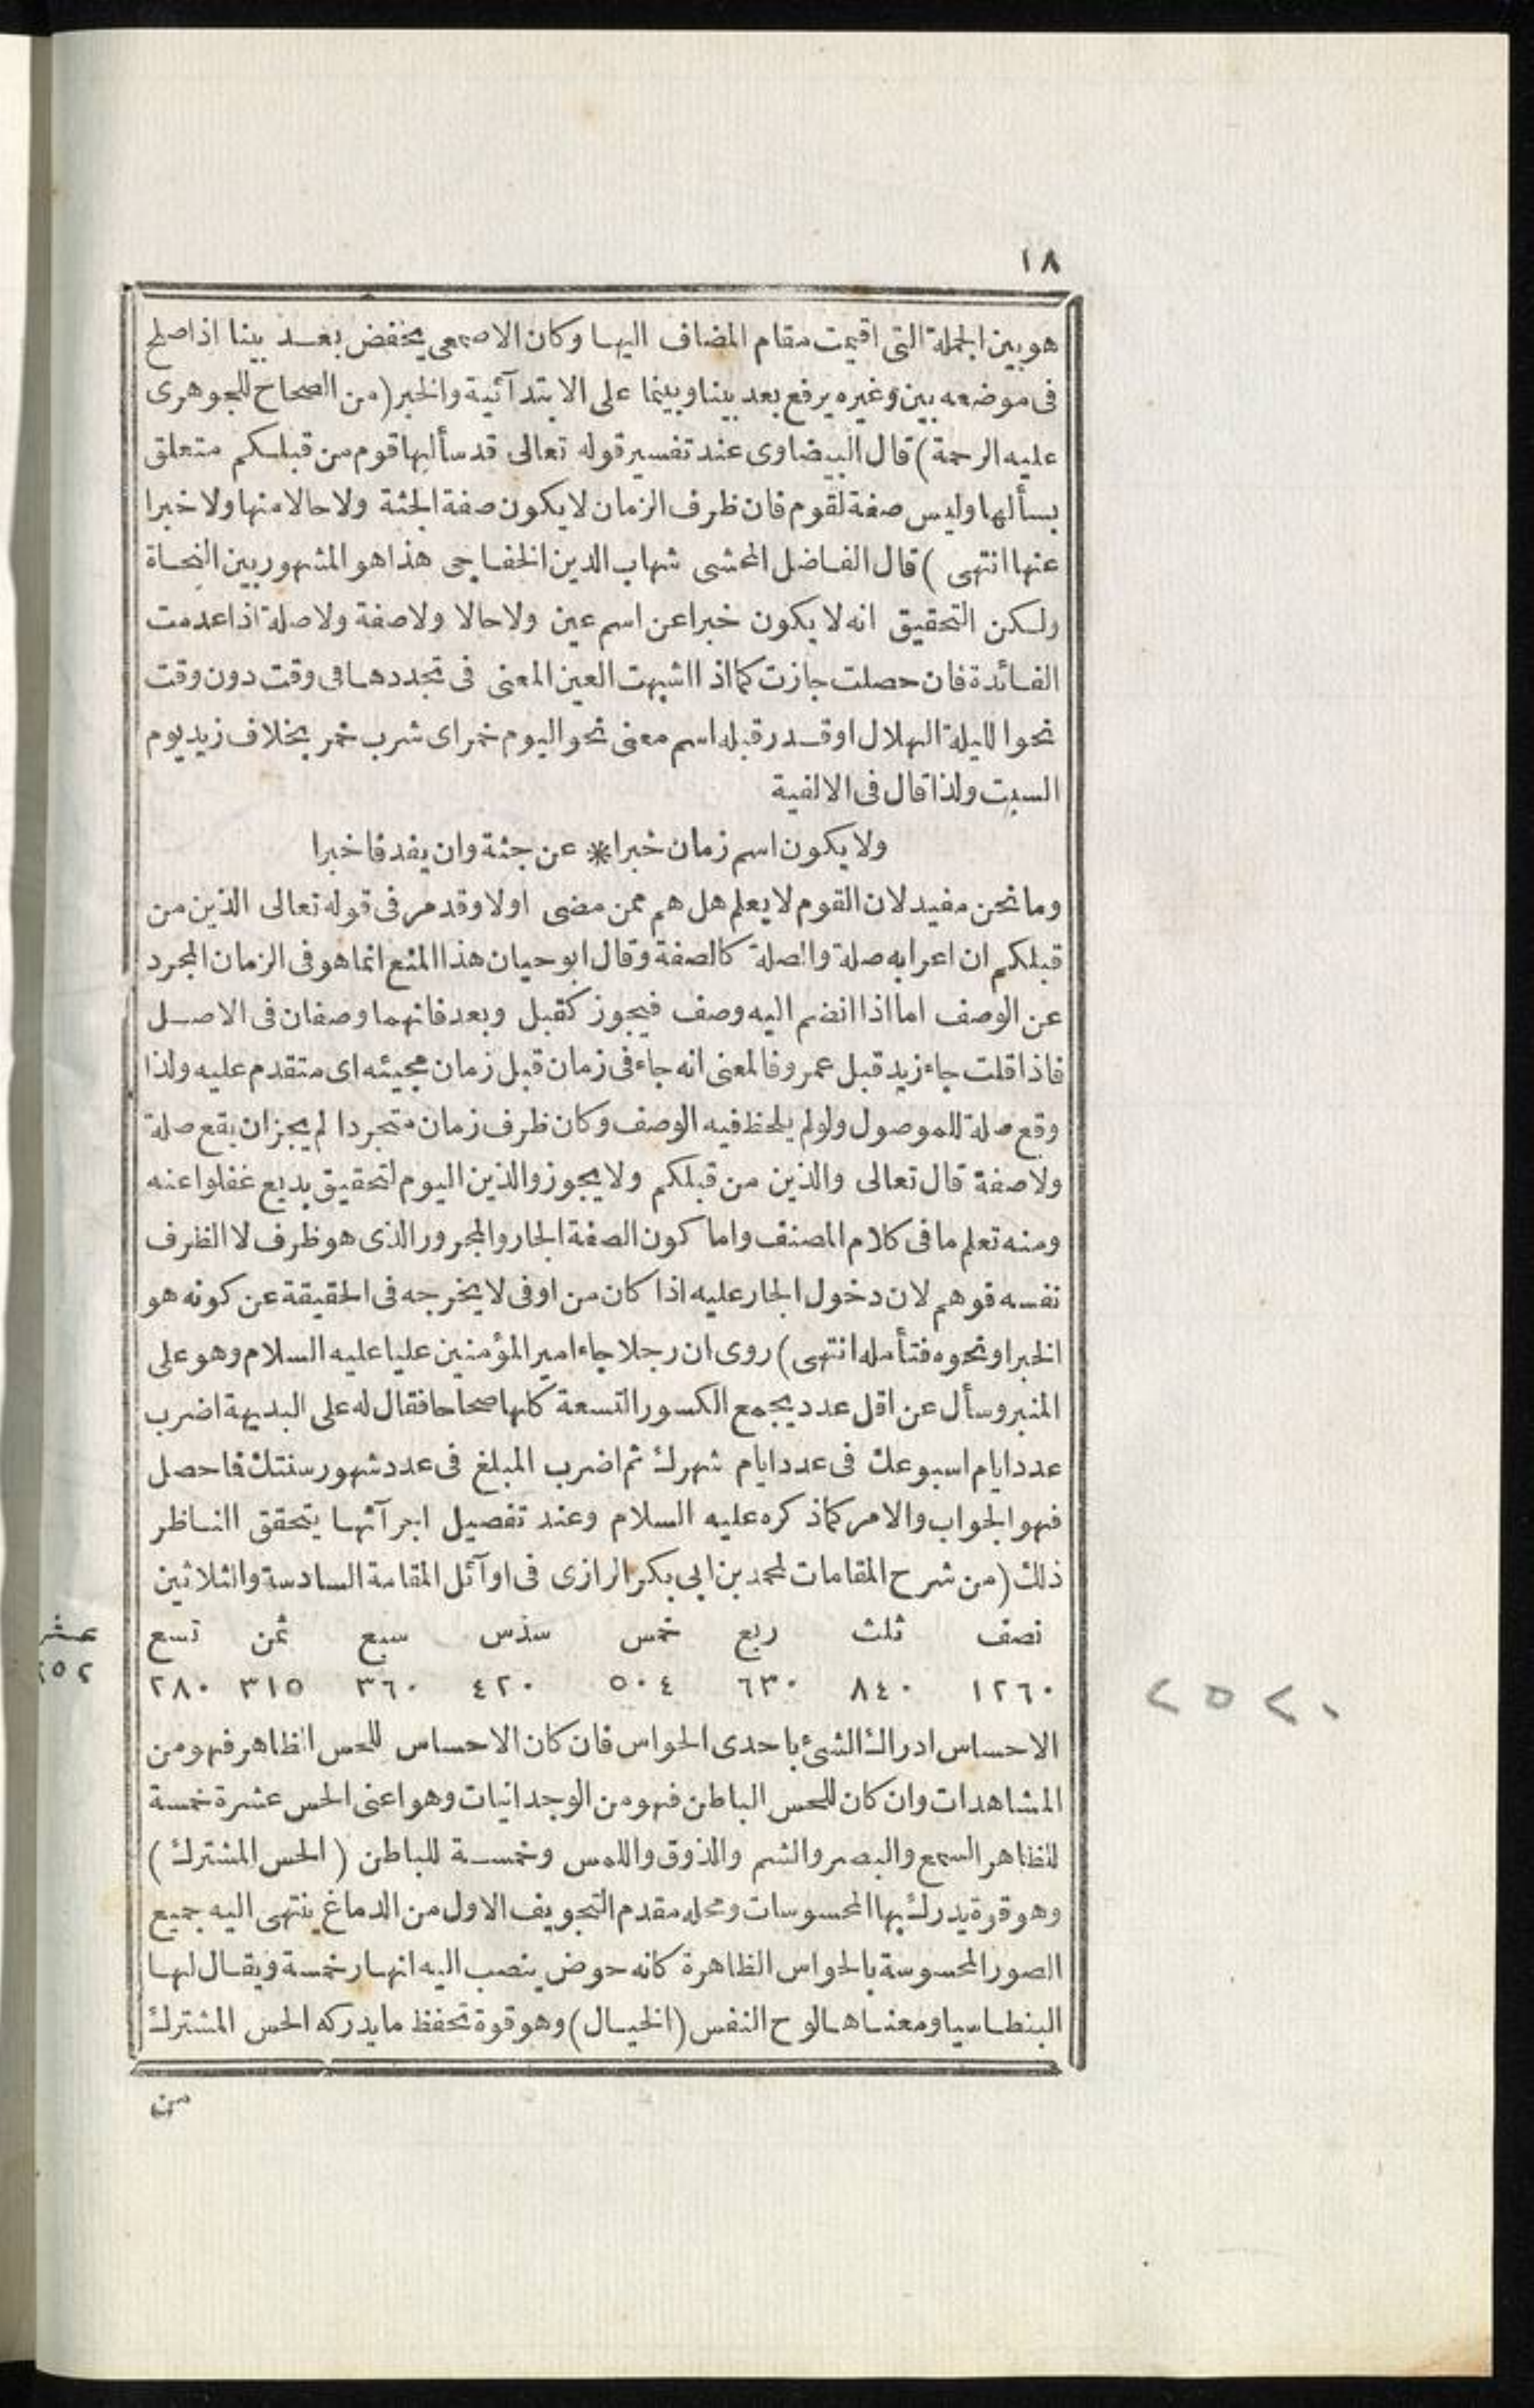 ١٨
هو بين الجملة التى اقيمت مقام المضاف اليها وكان الاصمعى يخفض بعد بينا اذا صلح
فى موضعه بين وغيره يرفع بعد بينا وبينما على الابتدآئية والخبر (من الصحاح للجوهرى
عليه الرحمة) قال البيضاوى عند تفسير قوله تعالى قد سألها قوم من قبلكم متعلق
بسألها وليس صفة لقوم فان ظرف الزمان لا يكون صفة الجثة ولا حالا منها ولا خبرا
عنها انتهى) قال الفاضل المحشى شهاب الدين الخفاجى هذا هو المشهور بين النحاة
ولكن التحقيق انه لا يكون خبرا عن اسم عين ولا حالا ولا صفة ولا صلة اذا عدمت
الفائدة فان حصلت جازت كما اذا اشبهت العين المعنى فى تجددها فى وقت دون وقت
نحو الليلة الهلال او قدر قبله اسم معنى نحو اليوم خمر اى شرب خمر بخلاف زيد يوم
السبت ولذا قال فى الالفية
ولا يكون اسم زمان خبرا * عن جثة وان يفد فاخبرا
وما نحن مفيد لان القوم لا يعلم هل هم ممن مضى اولا وقد مر فى قوله تعالى الذين من
قبلكم ان اعرابه صلة والصلة كالصفة وقال ابو حيان هذا المنع انما هو فى الزمان المجرد
عن الوصف اما اذا انضم اليه وصف فيجوز كقبل وبعد فانهما وصفان فى الاصل
فاذا قلت جاء زيد قبل عمرو فالمعنى انه جاء فى زمان قبل زمان مجيئه اى متقدم عليه ولذا
وقع صلة للموصول ولو لم يلحظ فيه الوصف وكان ظرف زمان متجردا لم يجز ان يقع صلة
ولا صفة قال تعالى والذين من قبلكم ولا يجوز والذين اليوم لتحقيق بديع غفلوا عنه
ومنه تعلم ما فى كلام المصنف واما كون الصفة الجار والمجرور الذى هو ظرف لا الظرف
نفسه فوهم لان دخول الجار عليه اذا كان من او فى لا يخرجه فى الحقيقة عن كونه هو
الخبر او نحوه فتأمله انتهى) روى ان رجلا جاء امير المؤمنين عليا عليه السلام وهو على
المنبر وسأل عن اقل عدد يجمع الكسور التسعة كلها صحاحا فقال له على البديهة اضرب
عدد ايام اسبوعك فى عدد ايام شهرك ثم اضرب المبلغ فى عدد شهور سنتك فاحصل
فهو الجواب والامر كما ذكره عليه السلام وعند تفصيل اجرآئها يتحقق الناظر
ذلك (من شرح المقامات لمحمد بن ابى بكر الرازى فى اوآئل المقامة السادسة والثلاثين
نصف ثلث ربع خمس سدس سبع ثمن تسع عشر
١٢٦٠ ٨٤٠ ٦٣٠ ٥٠٤ ٤٢٠ ٣٦٠ ٣١٥ ٢٨٠ ٢٥٢
٢٥٢٠
الاحساس ادراك الشئ باحدى الحواس فان كان الاحساس للحس الظاهر فهو من
المشاهدات وان كان للحس الباطن فهو من الوجدانيات وهو اعنى الحس عشرة خمسة
للظاهر السمع والبصر والشم والذوق واللمس وخمسة للباطن (الحس المشترك)
وهو قوة يدرك بها المحسوسات ومحله مقدم التجويف الاول من الدماغ ينتهى اليه جميع
الصور المحسوسة بالحواس الظاهرة كانه حوض ينصب اليه انهار خمسة ويقال لها
البنطاسيا ومعناها لوح النفس (الخيال) وهو قوة تحفظ ما يدركه الحس المشترك
من